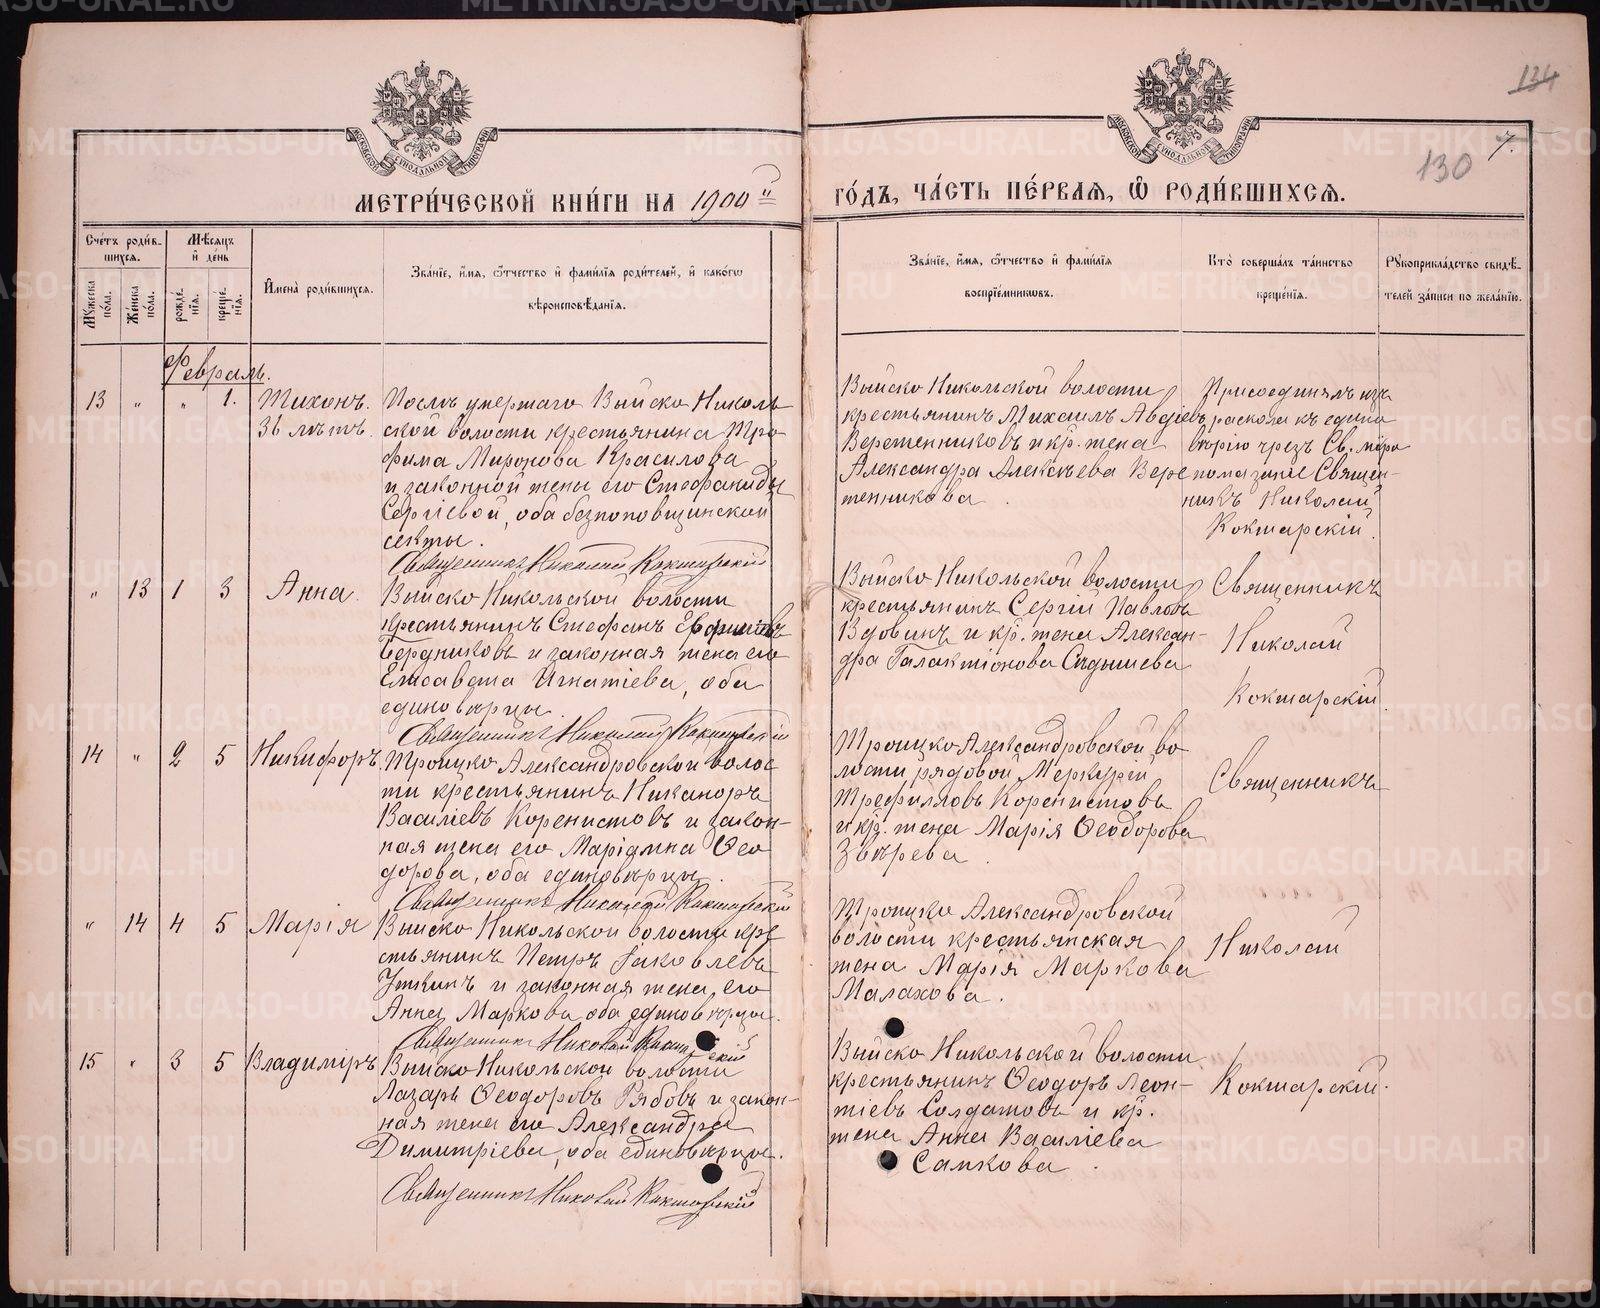 134
7.
130
МОСКОВСКОЙ СѴНОДАЛЬНОЙ ТИПОГРАФІИ
МОСКОВСКОЙ СѴНОДАЛЬНОЙ ТИПОГРАФІИ
МЕТРИ́ЧЕСКОЙ КНИ́ГИ НА 1900й
ГО́ДЪ, ЧА́СТЬ ПЕ́РВАЯ, Ѡ҆ РОДИ́ВШИХСѦ.
Сче́тъ роди́в-
шихсѧ.
Мꙋ́жеска по́ла.
Же́нска по́ла.
Мѣ́сѧцъ и҆ де́нь
рожде́нїѧ.
креще́нїѧ.
И҆мена̀ роди́вшихсѧ.
Зва́нїе, и҆́мѧ, ѻ҆́тчество и҆ фами́лїѧ роди́телей, и҆ како́гѡ
вѣроисповѣ́данїѧ.
Зва́нїе, и҆́мѧ, ѻ҆́тчество и҆ фами́лїѧ
воспрїе́мникѡвъ.
Кто̀ соверша́лъ та́инство
креще́нїѧ.
Рꙋкоприкла́дство свидѣ́-
телей за́писи по жела́нїю.
Февраль.
13 " " 1. Тихонъ.
36 лѣтъ.
Послѣ умершаго Выйско Николь
ской волости крестьянина Тро-
фима Миронова Красилова
и законной жены его Стефаниды
Сергіевой, оба безпоповщинской
секты.
Священникъ Николай Кокшарскій
Выйско Никольской волости
крестьянинъ Михаилъ Авдіевъ
Веретенниковъ и кр. жена
Александра Алексѣева Вере
тенникова.
Присоединялъ изъ
раскола къ едино
вѣрію чрезъ Св. мѵро
помазаніе Священ-
никъ Николай
Кокшарскій.
" 13 1 3 Анна.
Выйско Никольской волости
крестьянинъ Стефанъ
Бердниковъ и законная жена его
Елисавета Игнатіева, оба
единовѣрцы.
Священникъ Николай Кокшарскій
Выйско Никольской волости
крестьянинъ Сергій Павловъ
Вдовинъ и кр. жена Алексан-
дра Галактіонова Сѣдышева
Священникъ
Николай
Кокшарскій.
14 " 2 5 Никифоръ.
Троицко Александровской волос
ти крестьянинъ Никаноръ
Василіевъ Коренистовъ и закон-
ная жена его Маріамна Ѳео
дорова, оба единовѣрцы.
Священникъ Николай Кокшарскій
Троицко Александровской во
лости рядовой Меркурій
Трефилловъ Коренистовъ
и кр. жена Марія Ѳеодорова
Звѣрева.
Священникъ
" 14 4 5 Марія
Выйско Никольской волости кре
стьянинъ Петръ Іаковлевъ
Уткинъ и законная жена его
Анна Маркова оба единовѣрцы.
Священникъ Николай Кокшарскій
Троицко Александровской
волости крестьянская
жена Марія Маркова
Малахова.
Николай
15 " 3 5 Владиміръ
Выйско Никольской волости
Лазарь Ѳеодоровъ Рябовъ и закон-
ная жена его Александра
Димитріева, оба единовѣрцы.
Священникъ Николай Кокшарскій
Выйско Никольской волости
крестьянинъ Ѳеодоръ Леон-
тіевъ Солдатовъ и кр.
жена Анна Василіева
Самкова.
Кокшарскій.
METRIKI.GASO-URAL.RU